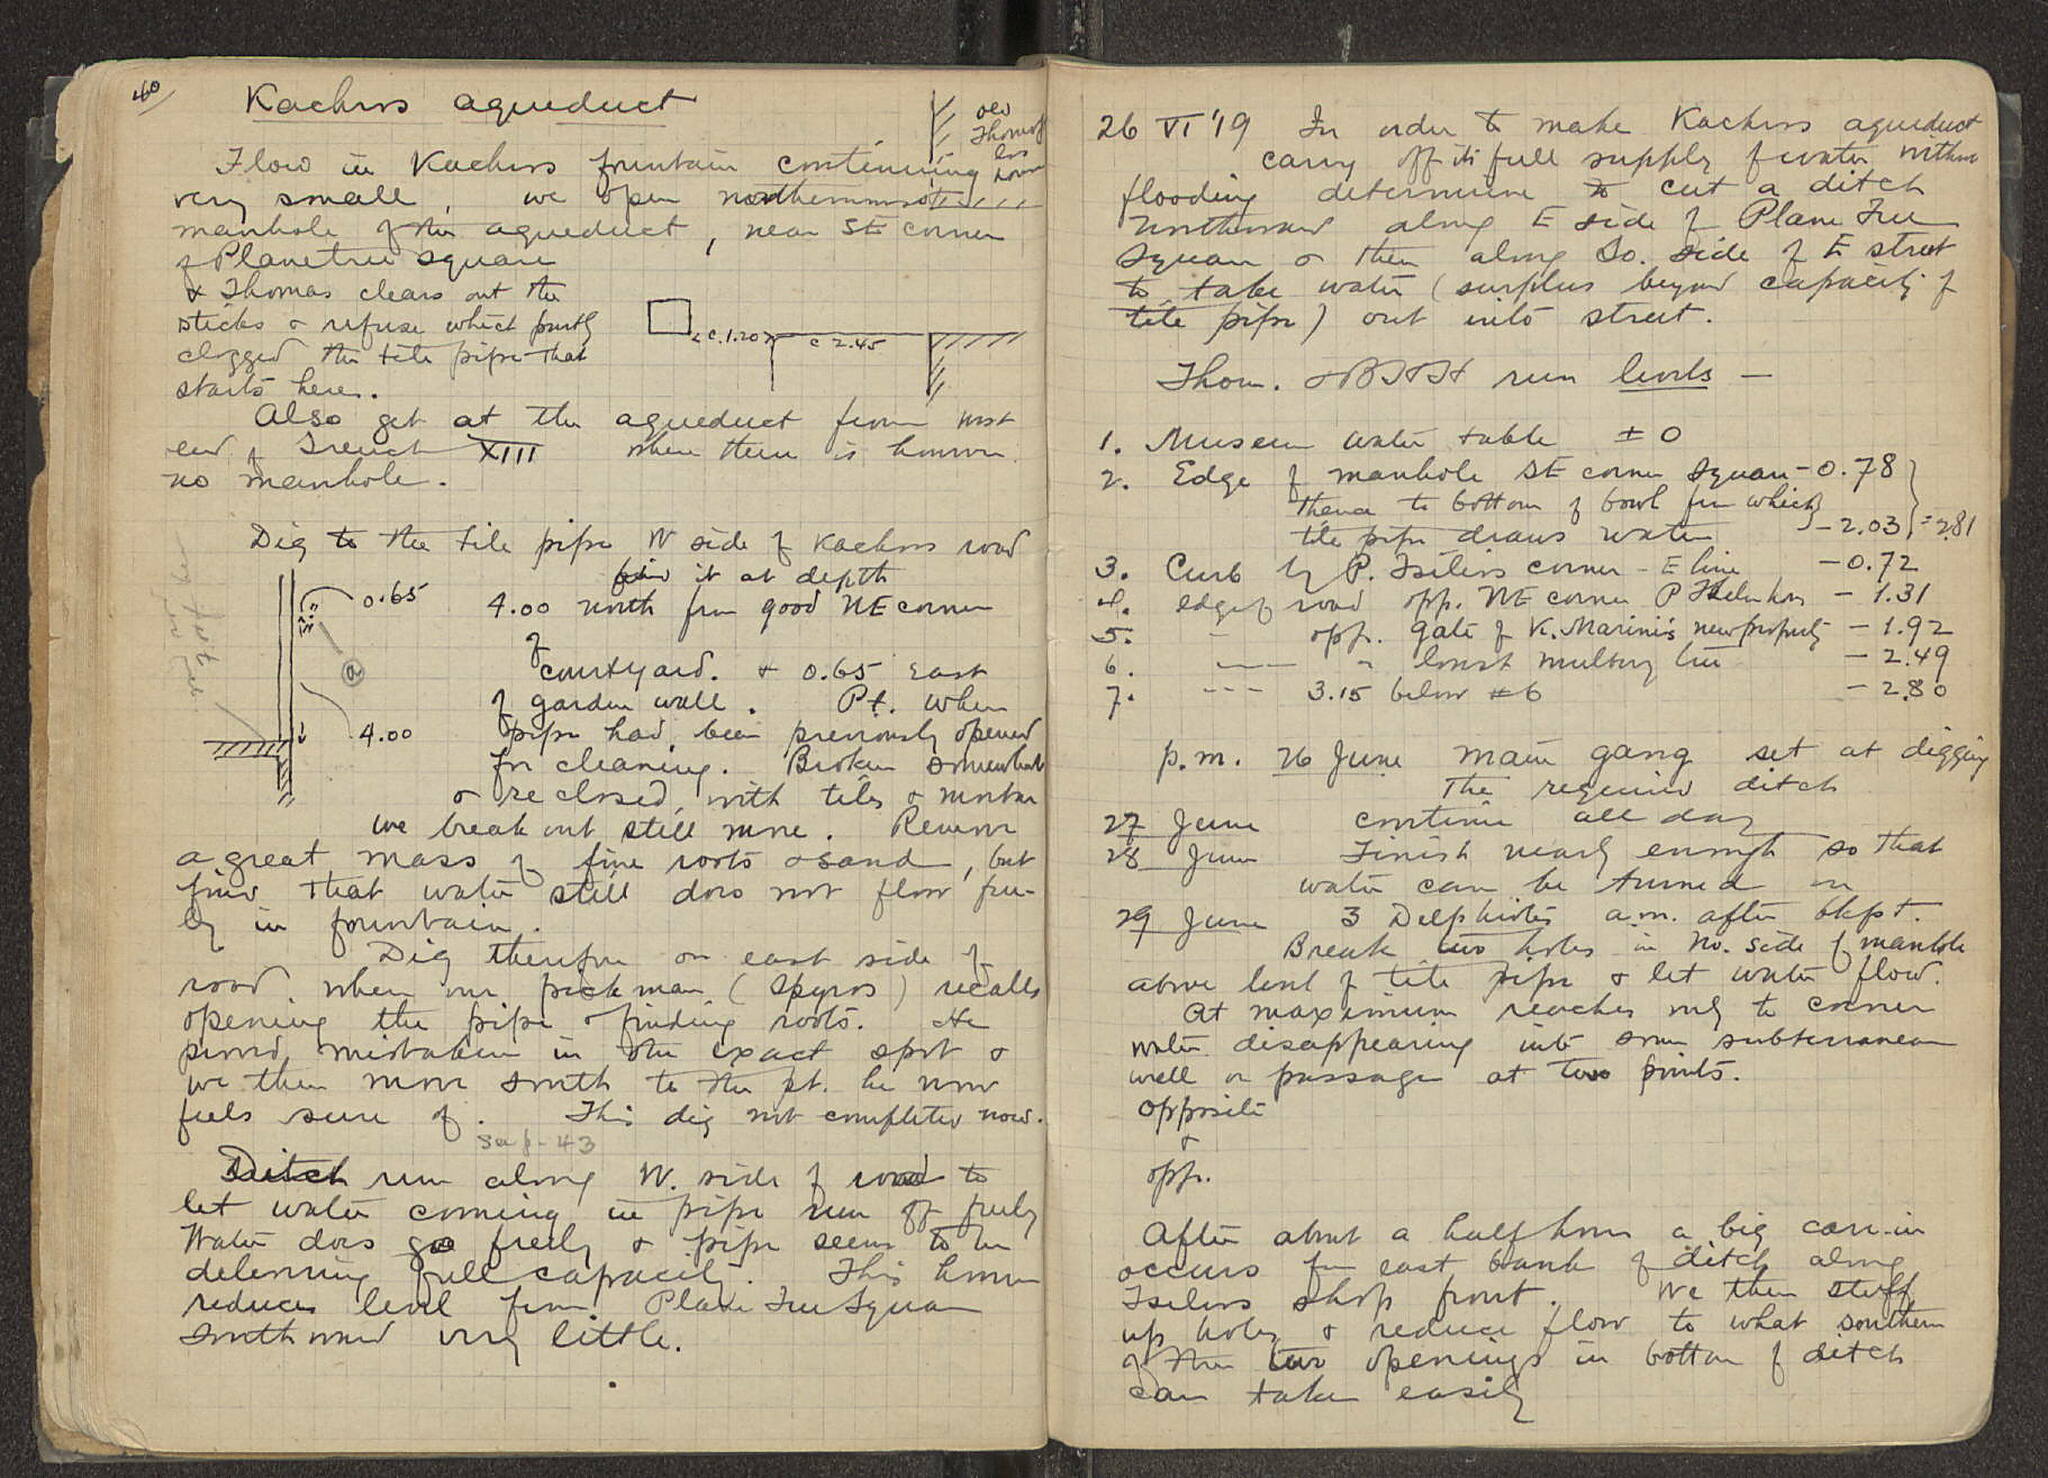 40
Kachros aqueduct
old
Thomof
los
house
Flow in Kachros fountain continuing
very small, we open northernmost
manhole of the aqueduct, near SE corner
of Planetree square
& Thomas clears out the
sticks & refuse which partly
clogged the tile pipe that
starts here.
c. 1.20
c 2.45
Also get at the aqueduct from west
end of Trench XIII where there is however
no manhole.
Dig to the tile pipe W side of Kachros road
find it at depth
0.65
4.00 north from good NE corner
of
courtyard. & 0.65 East
of garden wall. Pt. where
a
4.00
pipe had been previously opened
for cleaning. Broken somewhat
& reclosed, with tiles & mortar
we break out still more. Remove
a great mass of fine roots & sand, but
find that water still does not flow free-
ly in fountain.
Dig therefore on east side of
road, where our pickman (Spyros) recalls
opening the pipe & finding roots. He
proved mistaken in the exact spot &
we then move south to the pt. he now
feels sure of. This dig not completed now.
See p. 43
Ditch run along W. side of road to
let water coming in pipe run off freely
Water does go freely & pipe seems to be
delivering full capacity. This however
reduces level from Plane Tree Square
southward very little.
26 VI '19 In order to make Kachros aqueduct
carry off its full supply of water without
flooding determine to cut a ditch
northward along E side of Plane Tree
Square & then along So. side of E street
to take water (surplus beyond capacity of
tile pipe) out into street.
Thom. & BHH run levels —
1. Museum water table ± 0
2. Edge of manhole SE corner Square - 0.78
thence to bottom of bowl from which
tile pipe draws water - 2.03 = 2.81
3. Curb by P. Tselios corner - E line - 0.72
4. edge of road opp. NE corner P - 1.31
5. - opp. gate of K. Marinis new property - 1.92
6. — " lowest mulberry tree - 2.49
7. --- 3.15 below #6 - 2.80
p.m. 26 June main gang set at digging
the required ditch
27 June continue all day
28 June Finish nearly enough so that
water can be turned on
29 June 3 Delphiotes a.m. after bkpt.
Break two holes in No. side of manhole
above level of tile pipe & let water flow.
At maximum reaches only to corner
water disappearing into some subterranean
well or passage at two points.
opposite
&
opp.
After about a half hour a big cave-in
occurs from east bank of ditch along
Tselios shop front. We then stuff
up holes & reduce flow to what southern
of the two openings in bottom of ditch
can take easily